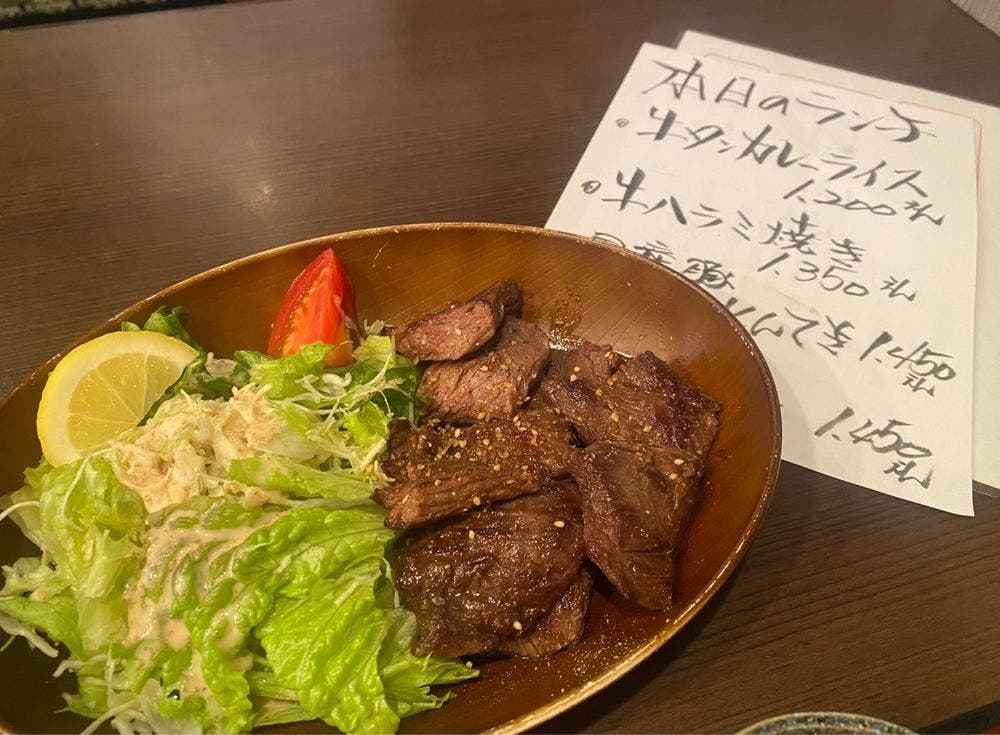 本日のランチ
牛タンカレーライス
1.200えん
牛ハラミ焼き
1.350えん
豚
とんてき 1.450
えん
1.450
えん